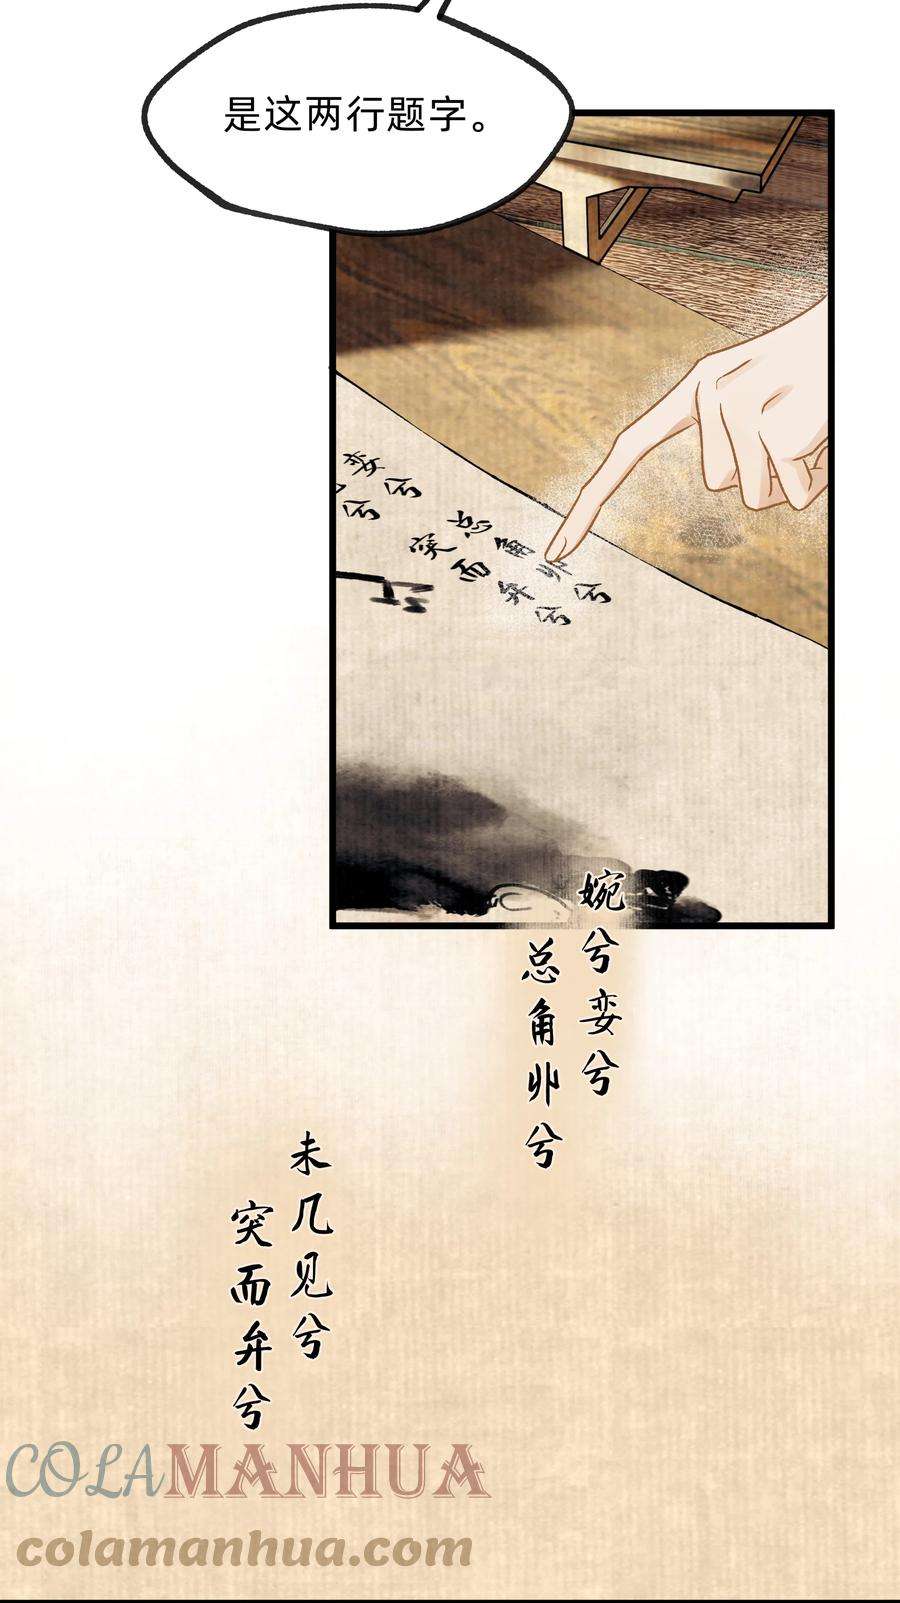 是这两行题字。
娈兮
兮
总角丱兮
突而弁兮
婉兮娈兮
总角丱兮
未几见兮
突而弁兮
COLAMANHUA
colamanhua.com